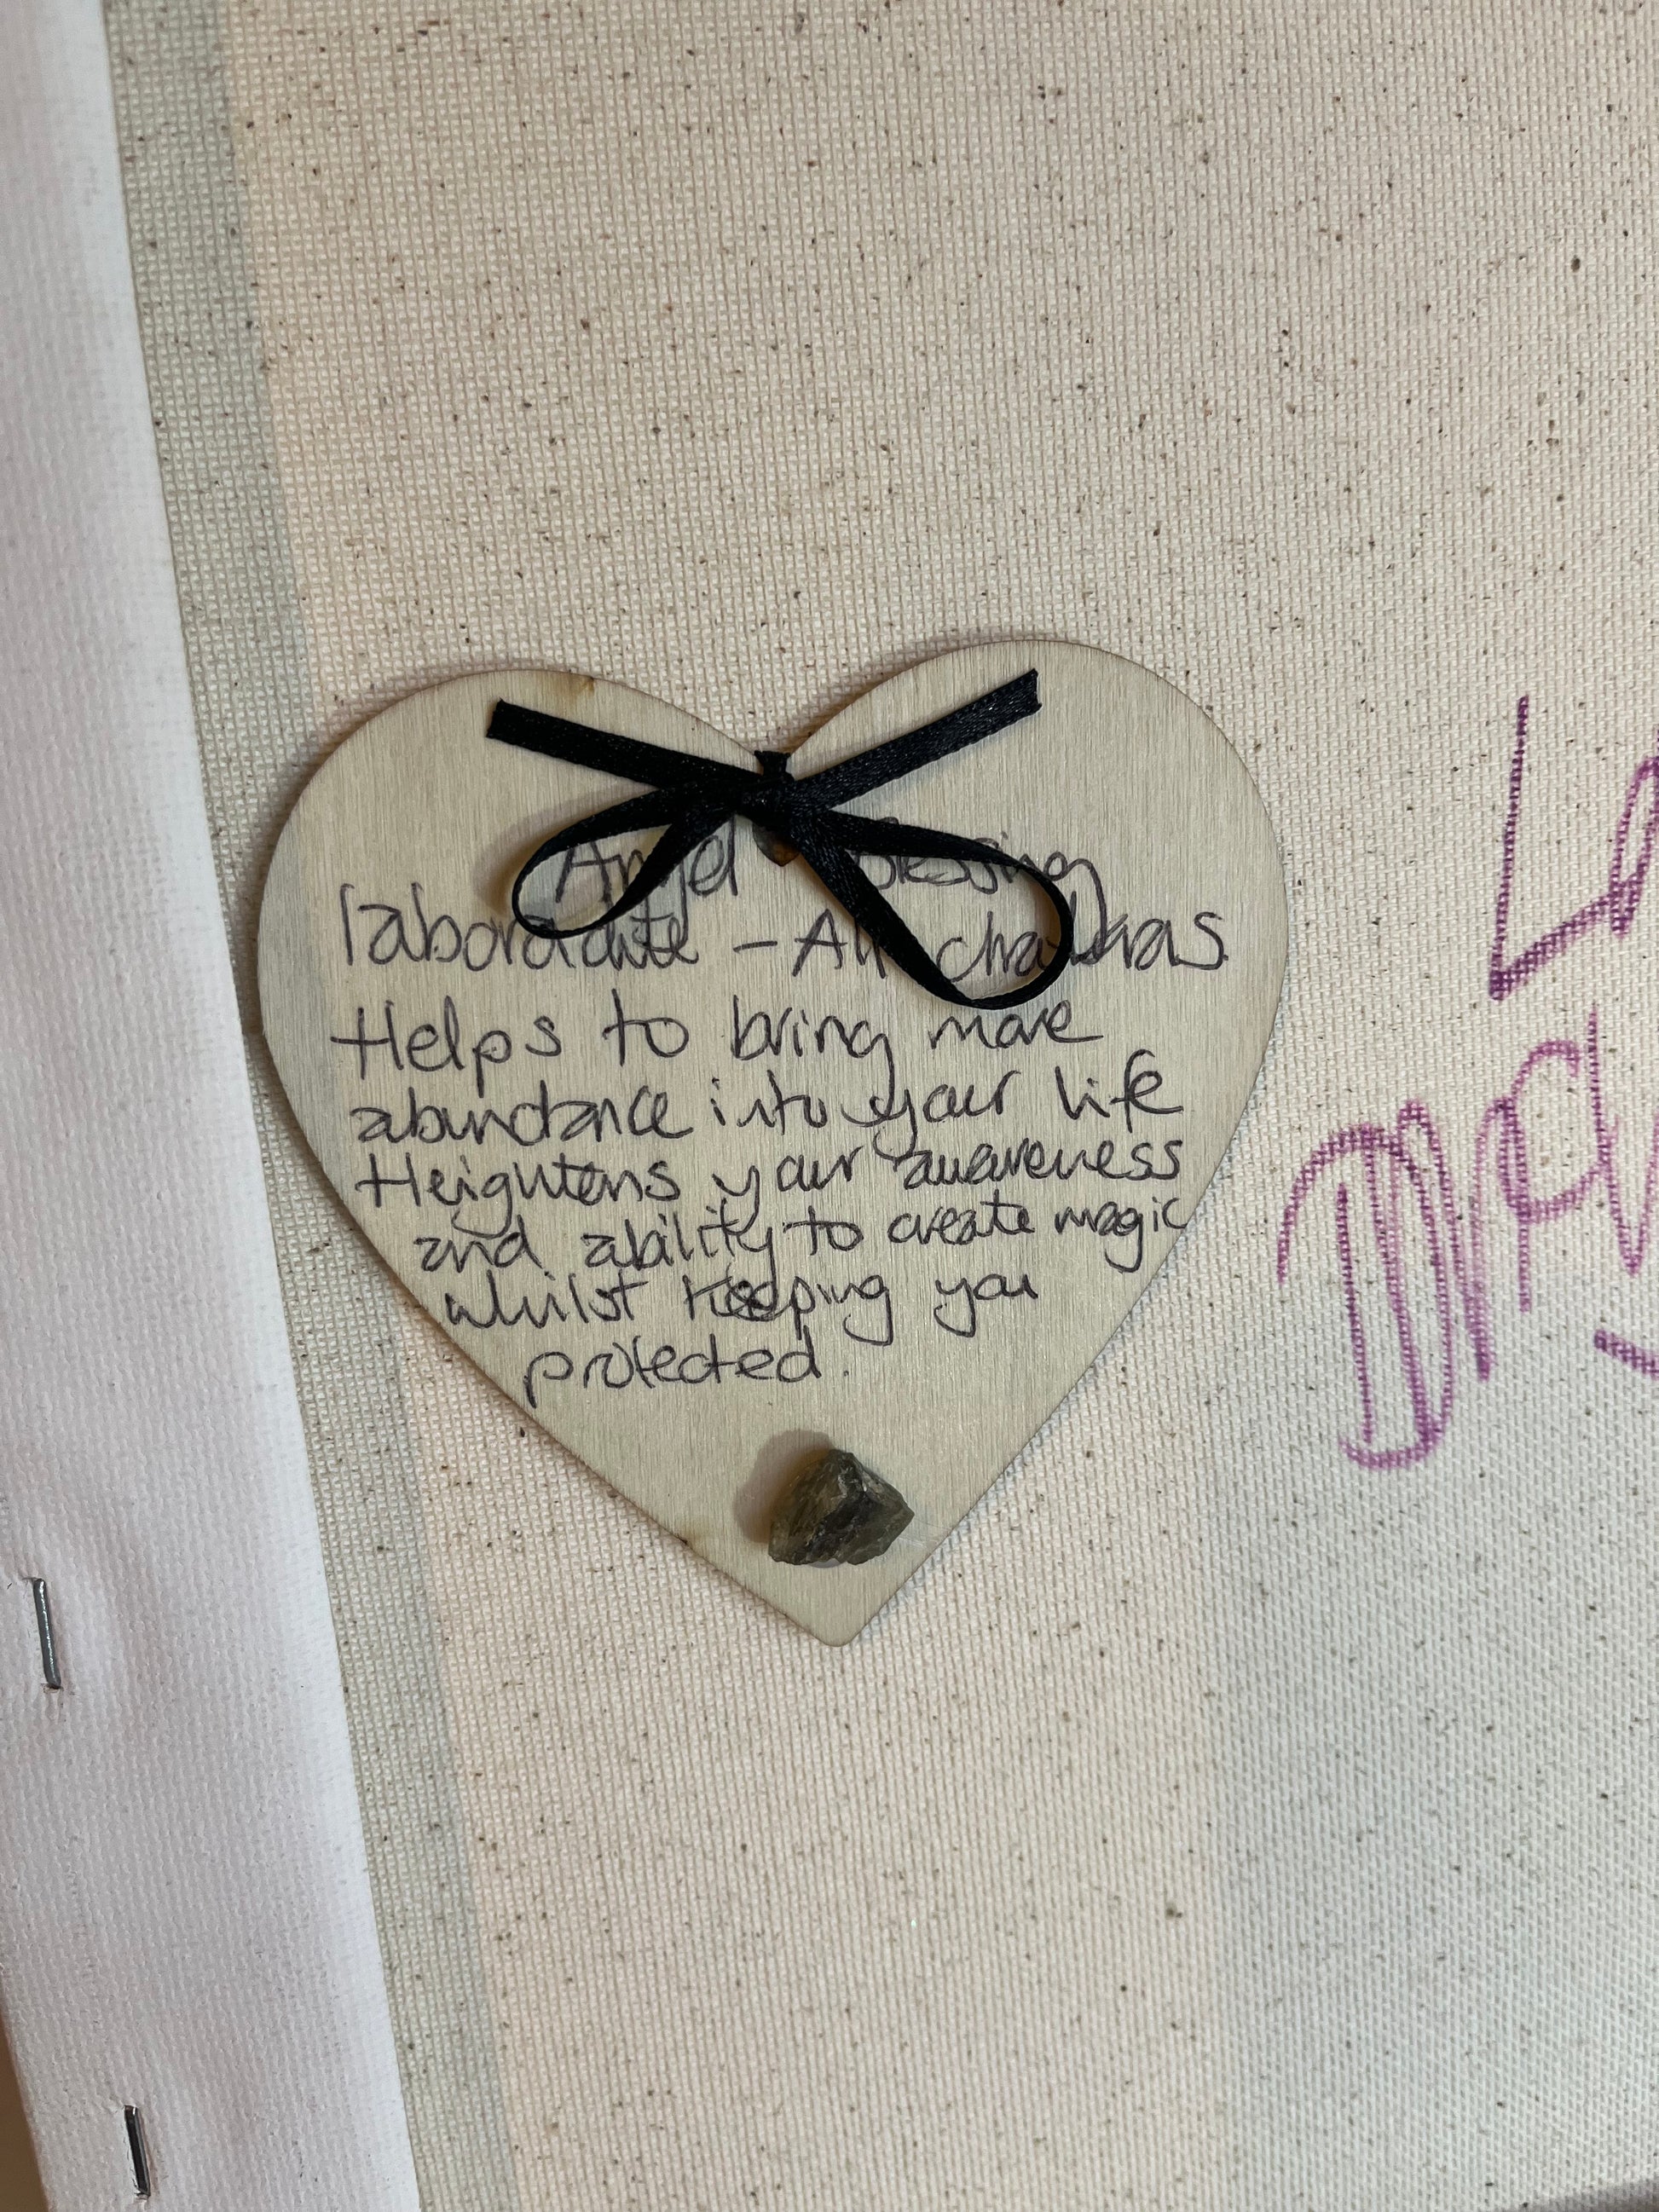 Angel Blessing
laboradite - All chakras
Helps to bring more
abundance into your life
Heightens your awareness
and ability to create magic
whilst keeping you
protected.